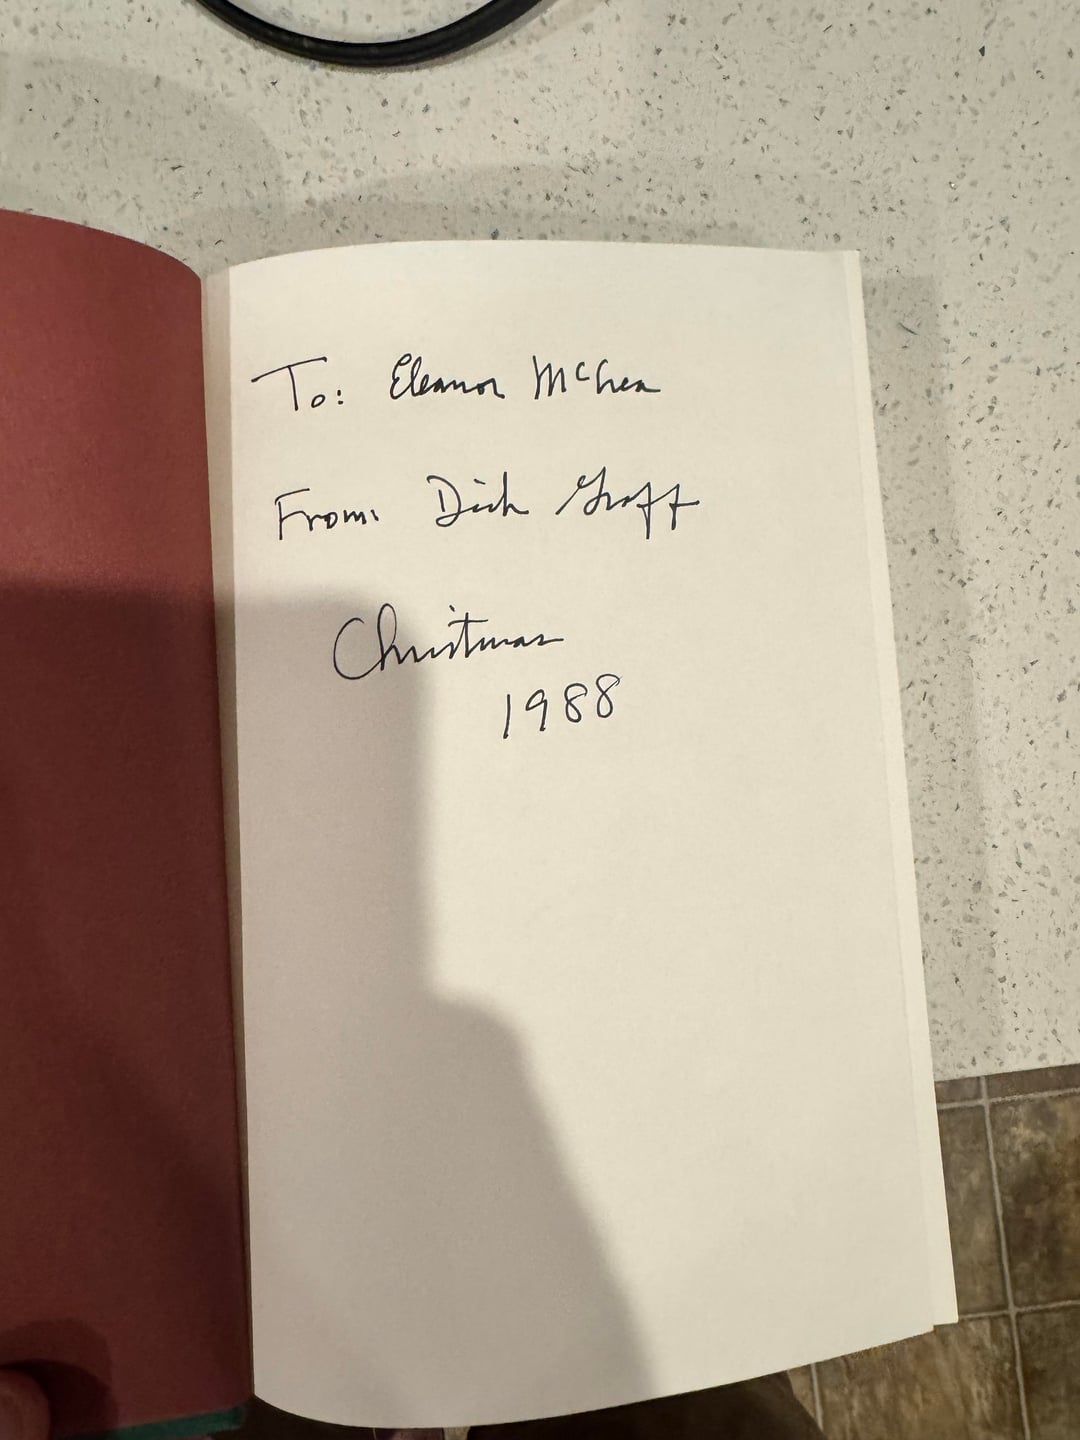 To: Eleanor McCrea
From: Dick Graff
Christmas
1988